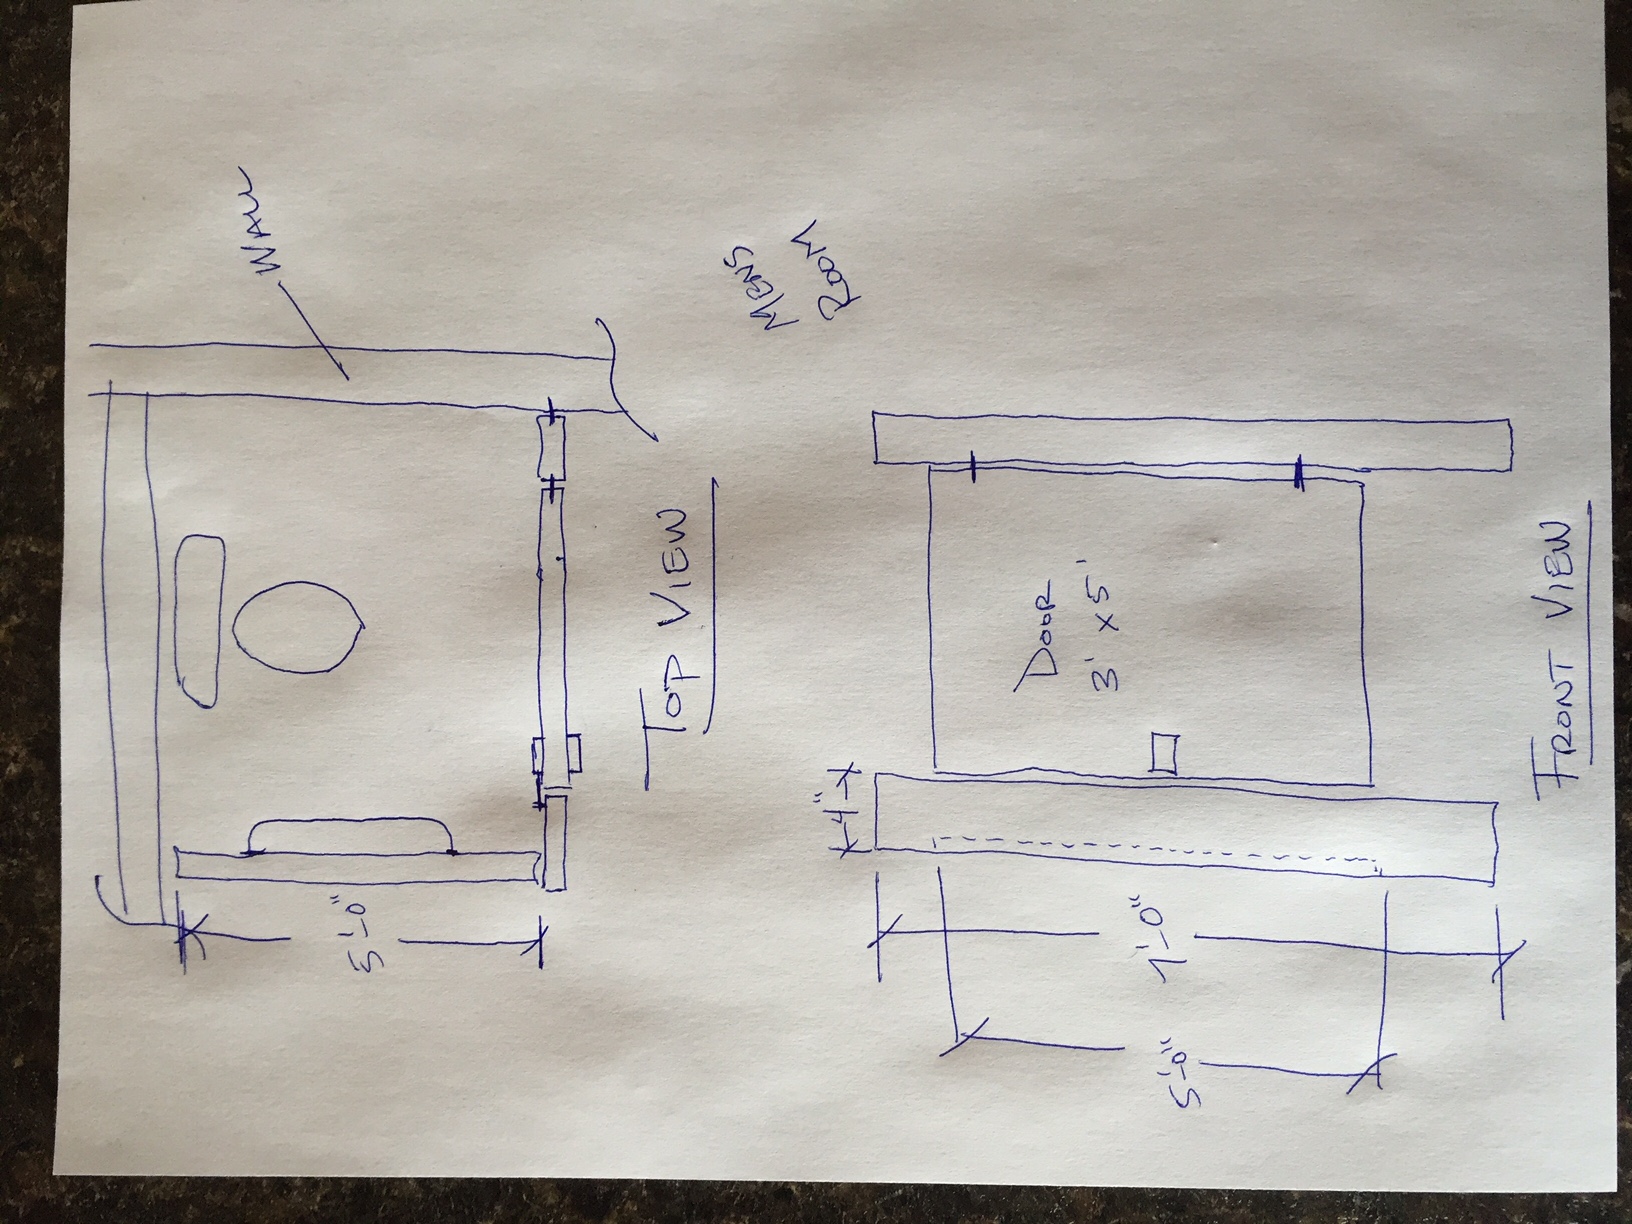 WALL
5'-0"
TOP VIEW
MENS
ROOM
4"
DOOR
3' x 5'
5'-0"
7'-0"
FRONT VIEW